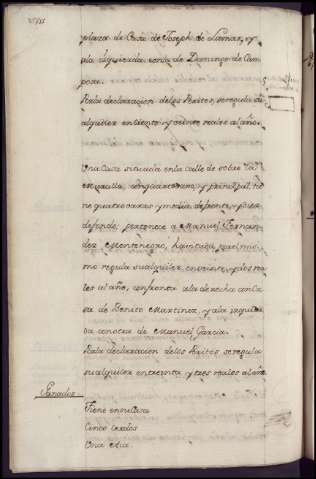 plaza de Casa de Joseph de Lamas, y
ala izquierda conla de Domingo de Cam
pos.
Pᵒʳ la declaracion delos Peritos, seregula su
alquiler en ciento y reales al año.
Una Casa situada enla calle de sobre la
Muralla, con quarto vajo, y prinzipal, tie
ne quatro varas y media defrente, y
defondo, pertenece a Manuel Fernan
dez Montenegro, havitada por el mis
mo regula sualquiler, en veinte, y dos rea
les al año, confronta ala derecha con Ca
sa de Benito Martinez, y ala izquier
da con otra de Manuel Garcia.
Por la declaracion delos Peritos se regula
sualquiler en treinta y tres reales al año
Ganados
Tiene
Cinco cerdos
Una